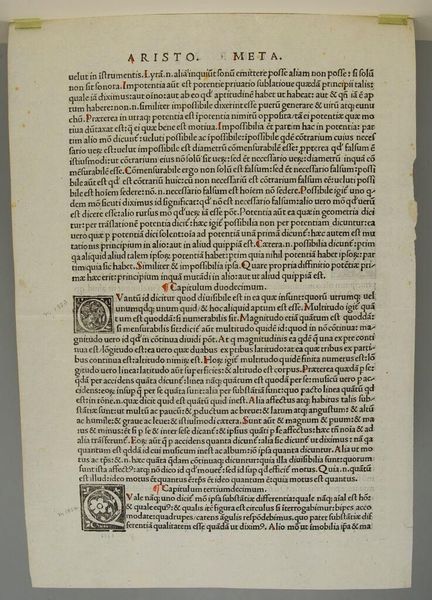 ARISTO. META.
uelut in īstrumentis. Lyrā.n.aliā inquiūt sonū emittere posse aliam non posse: si solū
non sit sonora. Impotentia aūt est potentiæ priuatio sublatioue quædā principii talis:
quale iā diximus: aut oīno: aut ab eo qd' aptitudinē habet ut habeat: aut & qn̄ iā ē ap
tum habere: non.n.similiter impossibile dixerint esse puerū generare & uirū atq; eunu
chū. Præterea in utraq; potentia est īpotentia
tiua dūtaxat est: & ei quæ bene est motiua. Impossibilia
tim alio mō dicunt̄: ueluti possibile ac īpossibile:
sario ueꝝ: est: uelut impossibile est diametrū cōmensurabilē esse:
istiusmodi: ut cōtrarium eius nō solū sit ueꝝ: sed ēt necessario
mēsurabilē esse. Cōmensurabile ergo non solū est falsum: sed ēt necessario falsum: possi
bile aūt est qd' est cōtrariū huic: cū non necessariū est cōtrarium falsum esse: ueluti possi
bile est hoīem sedere: nō.n.necessario falsum est hoīem nō sedere. Possibile igit̄ uno q
dem mō sicuti diximus id significat: qd' nō est necessario falsum: alio uero mō qd' uerū
est dicere esse: alio rursus mō qd' ueꝝ iā esse pōt. Potentia aūt ea quæ in geometria dici
tur: per traslationē potentia dicit̄: hæc igit̄ possibilia non per potentiam dicuntur: ea
uero quæ p potentiā dici solent: oīa ad potentiā unā prima dicunt̄: hæc autem est mu
tationis principium in alio: aut in aliud quippiā est. Cætera.n.possibilia dicunt̄: prim
qa aliquid aliud talem ipsoꝝ potentiā habet: prim quia nihil potentiā habet ipsoꝝ: par
tim quia sic habet. Similiter & impossibilia ipsa. Quare propria diffinitio potētiæ pri-
mæ hæc erit: principium inquā mutādi in alio: aut ut aliud quippiā est.
¶ Capitulum duodecimum.
QVantū id dicitur quod diuisibile est in ea quæ insunt: quorū utrumq; uel
unumqdq; unum quid/ & hoc aliquid aptum est esse. Multitudo igit̄ quā
tum est quoddā: si numerabilis sit. Magnitudo etiā quātum est quoddā:
si mensurabilis sit: dicit̄ aūt multitudo quidē id: quod in nō cōtinua: ma
gnitudo uero id qd' in cōtinua diuidi pōt. At q magnitudinis ea qdē q una ex pte conti
nua est: lōgitudo est: ea uero quæ duabus ex ptibus latitudo: at ea quæ tribus ex parti
bus continua est: altitudo nimiꝝ est. Hoꝝ igit̄ multitudo quidē finita numerus est: lō
gitudo uero linea: latitudo aūt superficies: & altitudo est corpus. Præterea quædā p se:
qdā per accidens quāta dicunt̄: linea nāq; quātum est quodda per se: musicū uero p ac
cidens: eoꝝ: insup q per se quāta sunt: alia per substātiā sunt: uel quo pacto linea quātū qd
est: in rōne.n.quæ dicit quid est quātū quid inest. Alia affectus atq; habitus talis sub-
stātiæ sunt: ut multū ac paucū: & pductum ac breue: & latum atq; angustum: & altū
ac humile: & graue ac leue: & istiusmodi cætera. Sunt aūt & magnum & puum: & ma
ius & minus: ēt si p se & inter sese dicant̄: & ipsius quāti p se affectus: hæc ēt noīa & ad
alia trāsferunt̄. Eoꝝ aūt q p accidens quanta dicunt̄: alia sic dicunt̄ ut diximus: nā qa
quantum est qddā id cui musicum inest ac album: iō ipsa quanta dicuntur. Alia ut mo
tus ac tps: & .n. hæc quāta qdam cōtinuaq; dicuntur: quia illa diuisibilia sunt: quorum
sunt ista affectꝰ: atq; nō dico id qd' mouet̄: sed id sup qd' efficit̄ motus. Quia.n.quātū
est illud: ideo motus ēt quantus est: & tps ēt ideo quantum ē: quia motus est quantus.
¶ Capitulum tertiumdecimum.
QVale nāq; uno dicit̄ mō ipsa substātiæ differentia: quale nāq; aīal est hōꝰ
& quale equꝰ: & qualis itē figura est circulus si īterrogabimur: bipes acco
modate: quadrupes: carens āgulis respōdebimus: quo pacto substātiæ dif
ferentia qualitatem esse quādā ut diximꝰ. Alio mō ut īmobilia ipsa & ma